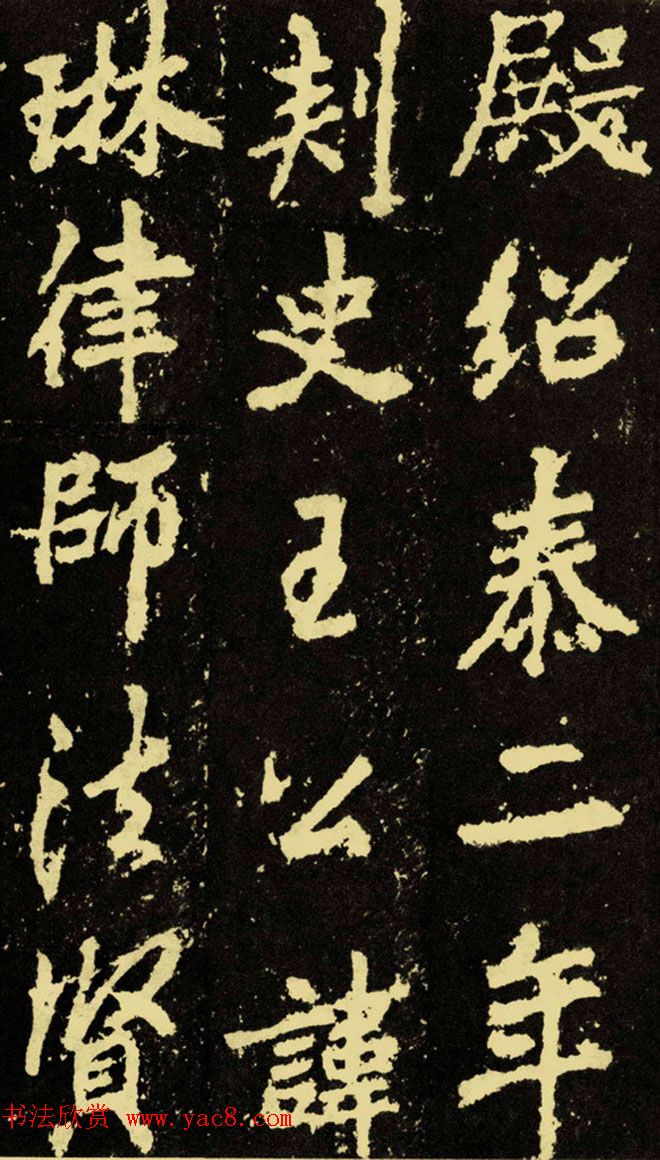 殿紹泰二年
刺史王公諱
琳律師法賢
书法欣赏 www.yac8.com